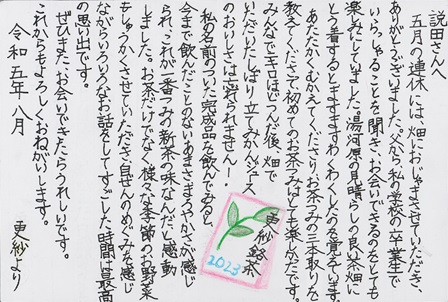 説田さんへ
五月の連休には、畑におじゃまさせていただき、
ありがとうございました。父から、私の学校の卒業生で
いらっしゃることを聞き、お会いできるのをとても
楽しみにしていました。湯河原の見晴らしの良い茶畑に
とう着するとますますわくわくしたのを覚えています。
あたたかくむかえてくださり、お茶つみの一本取りを
教えてくださって初めてのお茶つみはとても楽しかったです。
みんなで一キロほどつんだ後、畑で
いただいたしぼり立てみかんジュース
のおいしさは忘れられません！
私の名前のついた完成品を飲んでみると
今まで飲んだことのないあまさまろやかさが感じ
られ、これが一番つみの新茶の味なんだと感動
しました。お茶だけでなく様々な季節のお野菜
もしゅうかくさせていただき、自ぜんのめぐみを感じ
ながらいろいろなお話をしてすごした時間は最高
の思い出です。
ぜひまた、お会いできたらうれしいです。
これからもよろしくおねがいします。
令和五年八月
更紗より
更紗緑茶
2023